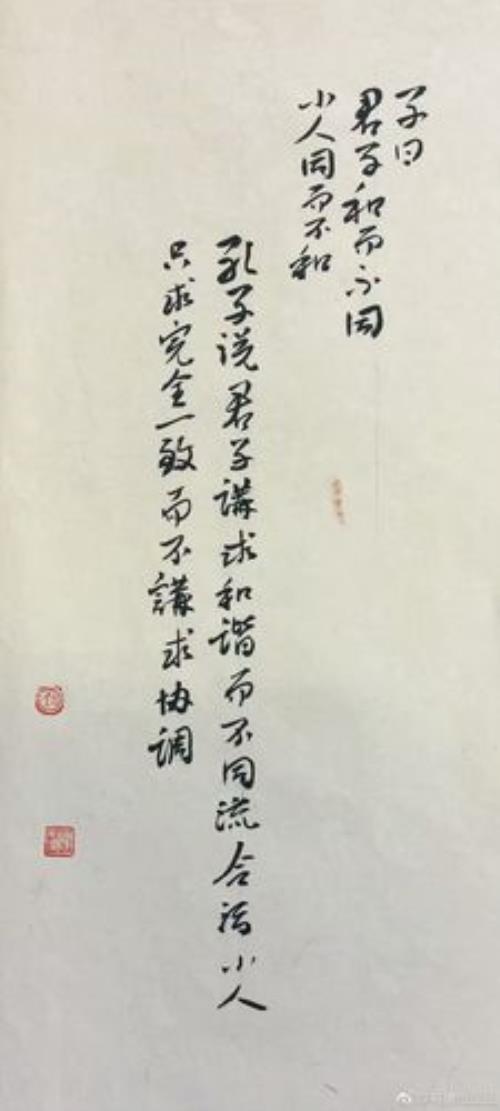 子曰
君子和而不同
小人同而不和
孔子说君子講求和谐而不同流合污小人
只求完全一致而不講求协调